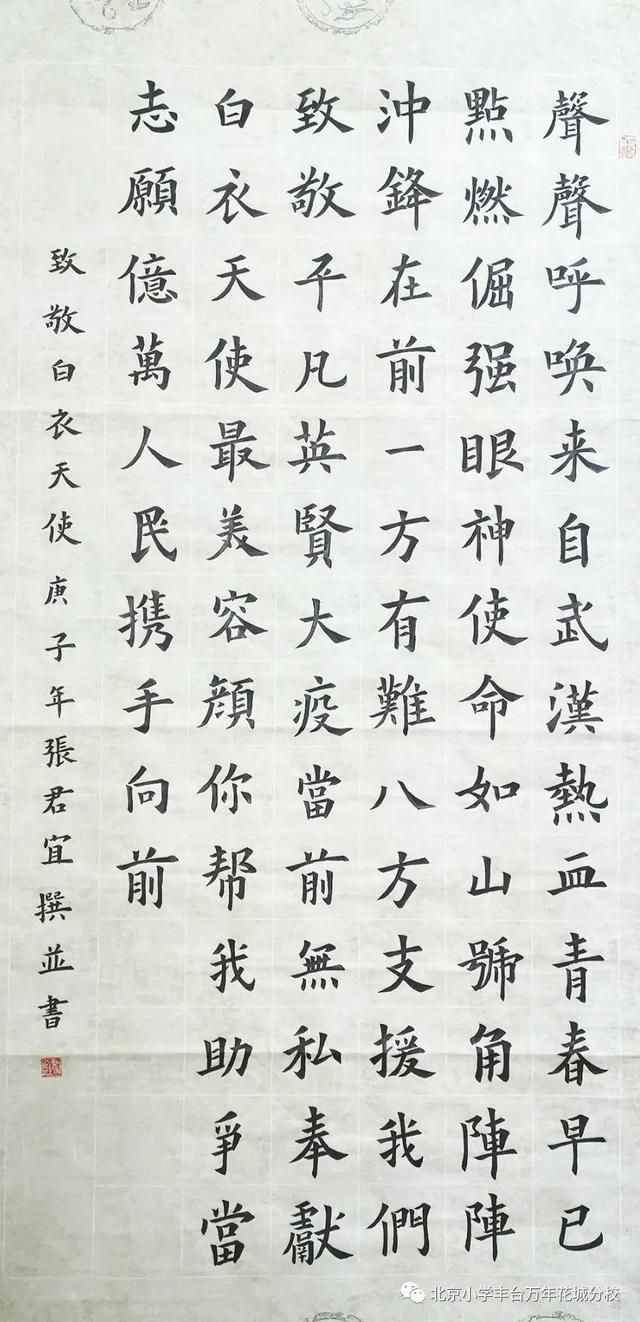 聲聲呼唤来自武漢熱血青春早已
點燃倔强眼神使命如山號角陣陣
沖鋒在前一方有難八方支援我們
致敬平凡英賢大疫當前無私奉獻
白衣天使最美容顔你帮我助爭當
志願億萬人民携手向前
致敬白衣天使庚子年張君宜撰並書
北京小学丰台万年花城分校